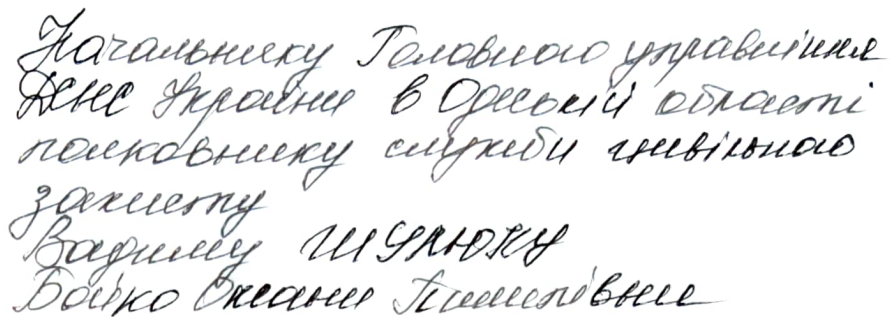 Начальнику Головного управління
ДСНС України в Одеській області
полковнику служби цивільного
захисту
Вадиму ШУЛЮКУ
Бойко Оксани Пилипівни